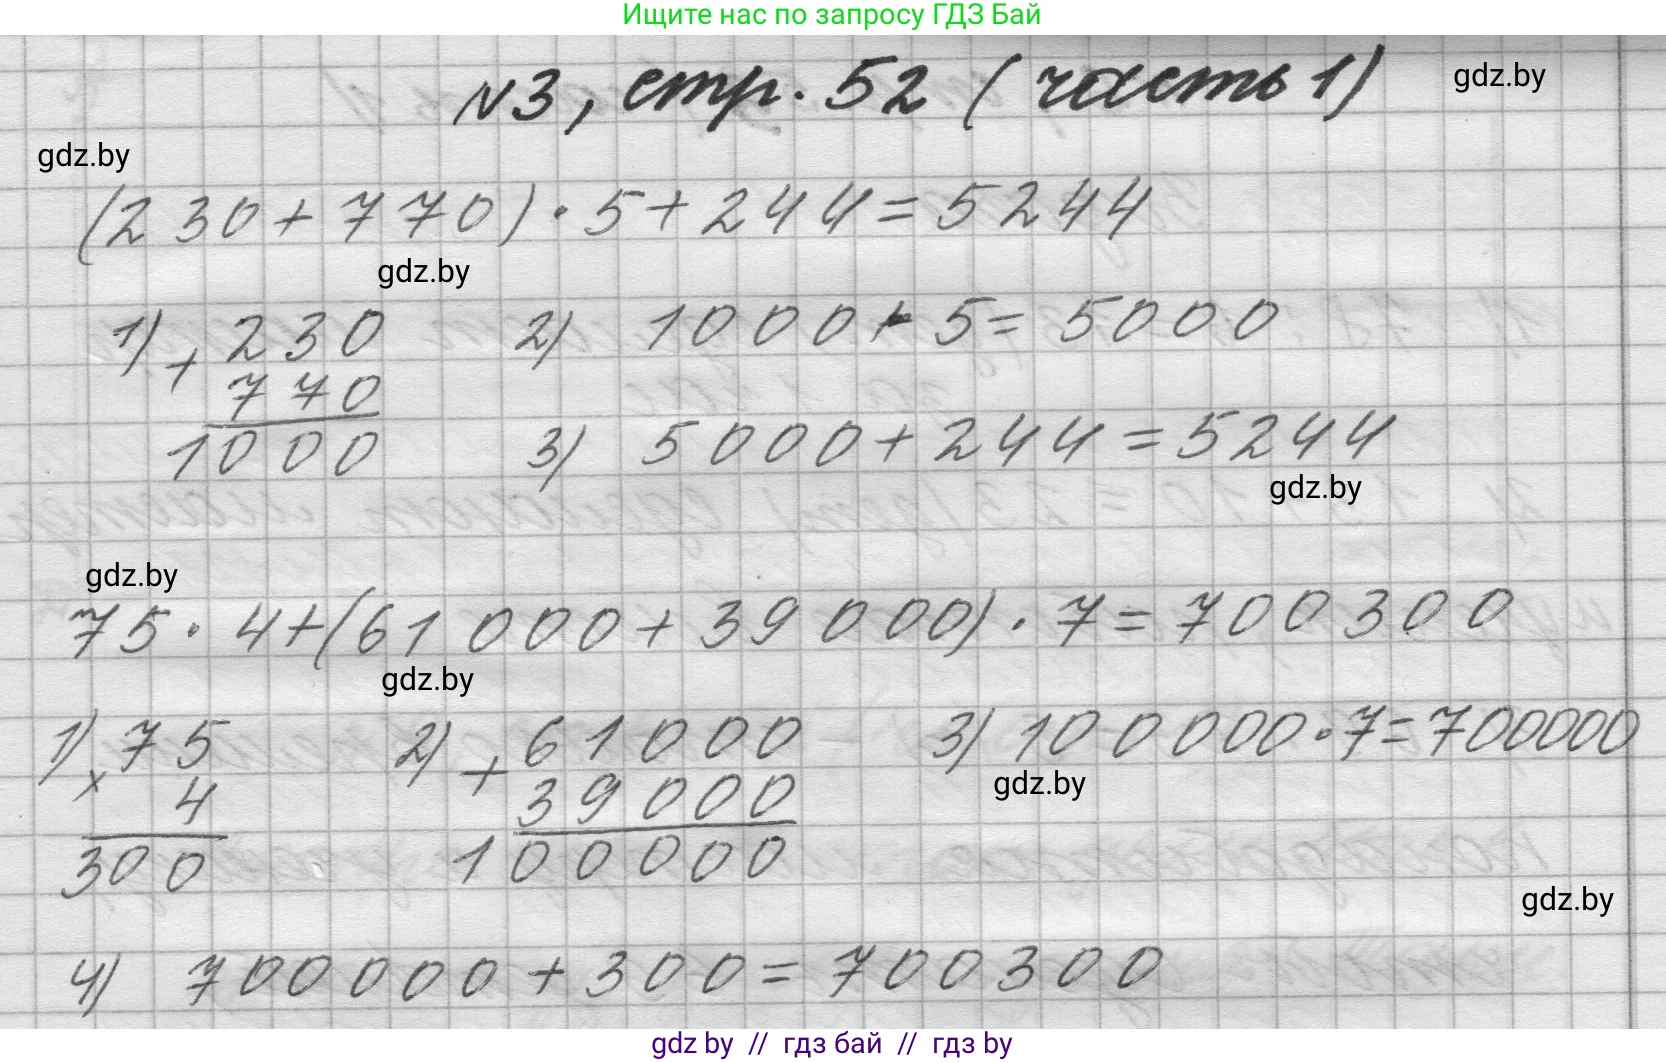 Ищите нас по запросу ГДЗ Бай
№3, стр. 52 (часть 1)
gdz.by
gdz.by
(230+770)·5+244=5244
gdz.by
1) +230 2) 1000·5=5000
770
1000 3) 5000+244=5244
gdz.by
gdz.by
75·4+(61000+39000)·7=700300
gdz.by
1) ×75 2) +61000 3) 100000·7=700000
4 39000
gdz.by
300 100000
gdz.by
4) 700000+300=700300
gdz by // гдз бай // гдз by